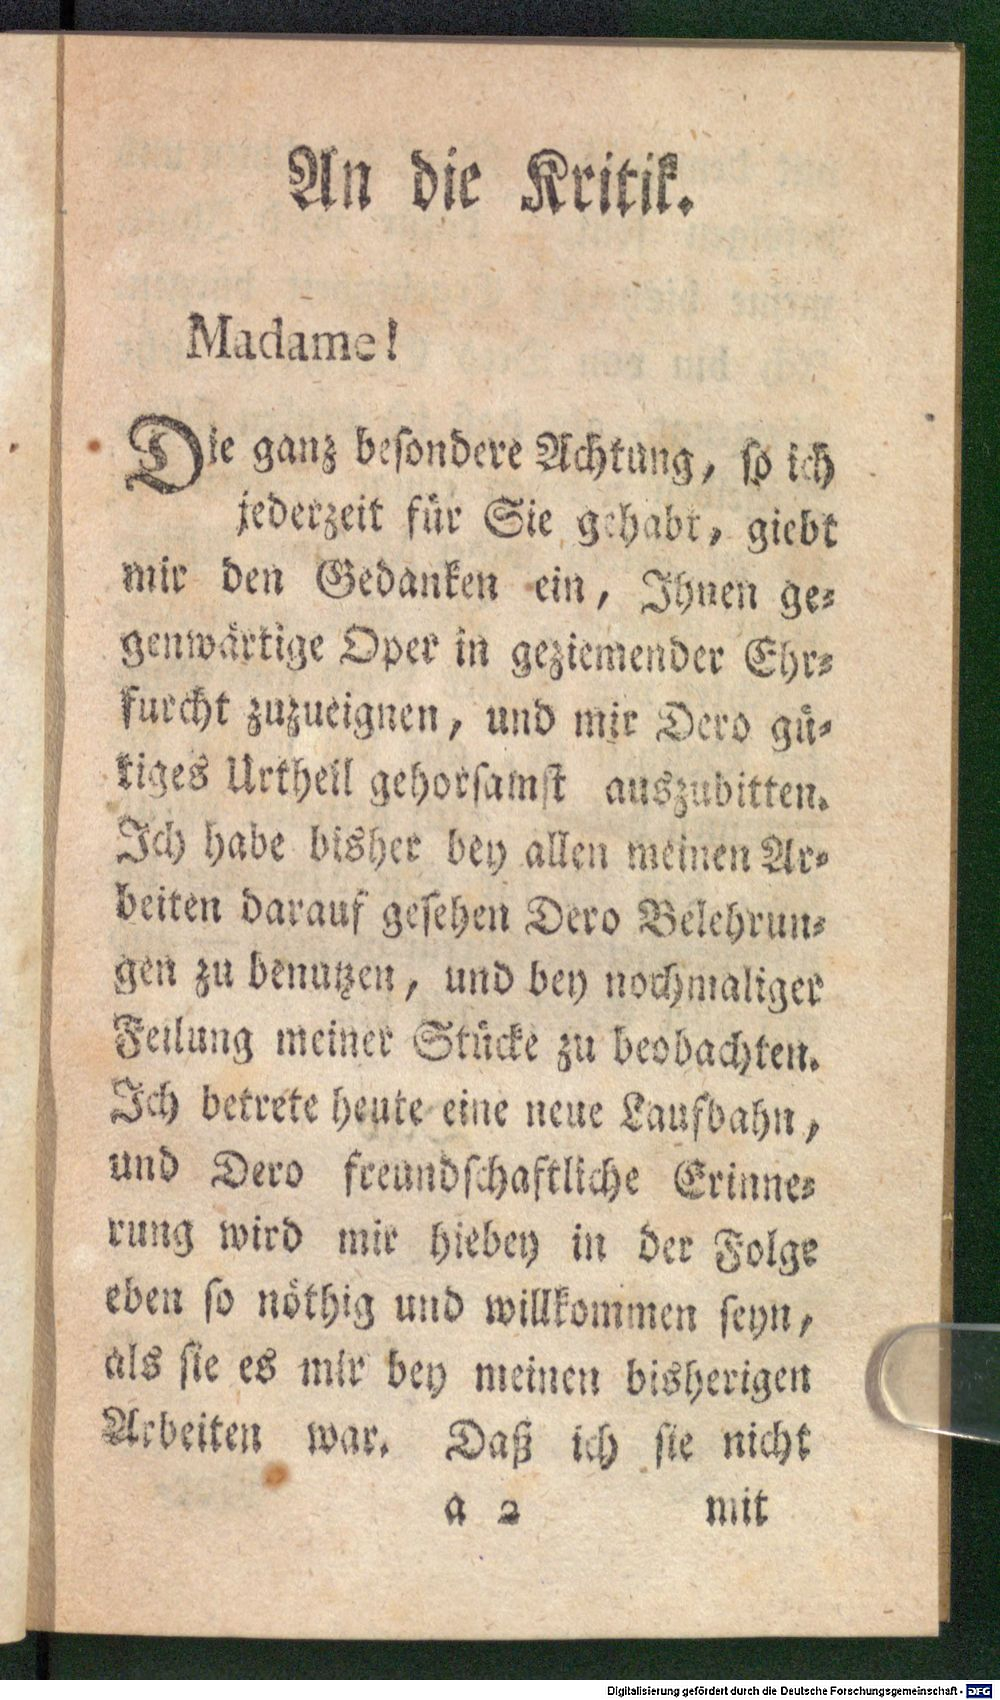 An die Kritik.
Madame!
Die ganz beſondere Achtung, ſo ich
jederzeit für Sie gehabt, giebt
mir den Gedanken ein, Ihnen ge-
genwärtige Oper in geziemender Ehr-
furcht zuzueignen, und mir Dero gü-
tiges Urtheil gehorſamſt auszubitten.
Ich habe bisher bey allen meinen Ar-
beiten darauf geſehen Dero Belehrun-
gen zu benutzen, und bey nochmaliger
Feilung meiner Stücke zu beobachten.
Ich betrete heute eine neue Laufbahn,
und Dero freundſchaftliche Erinne-
rung wird mir hiebey in der Folge
eben ſo nöthig und willkommen ſeyn,
als ſie es mir bey meinen bisherigen
Arbeiten war. Daß ich ſie nicht
a 2 mit
Digitalisierung gefördert durch die Deutsche Forschungsgemeinschaft - DFG